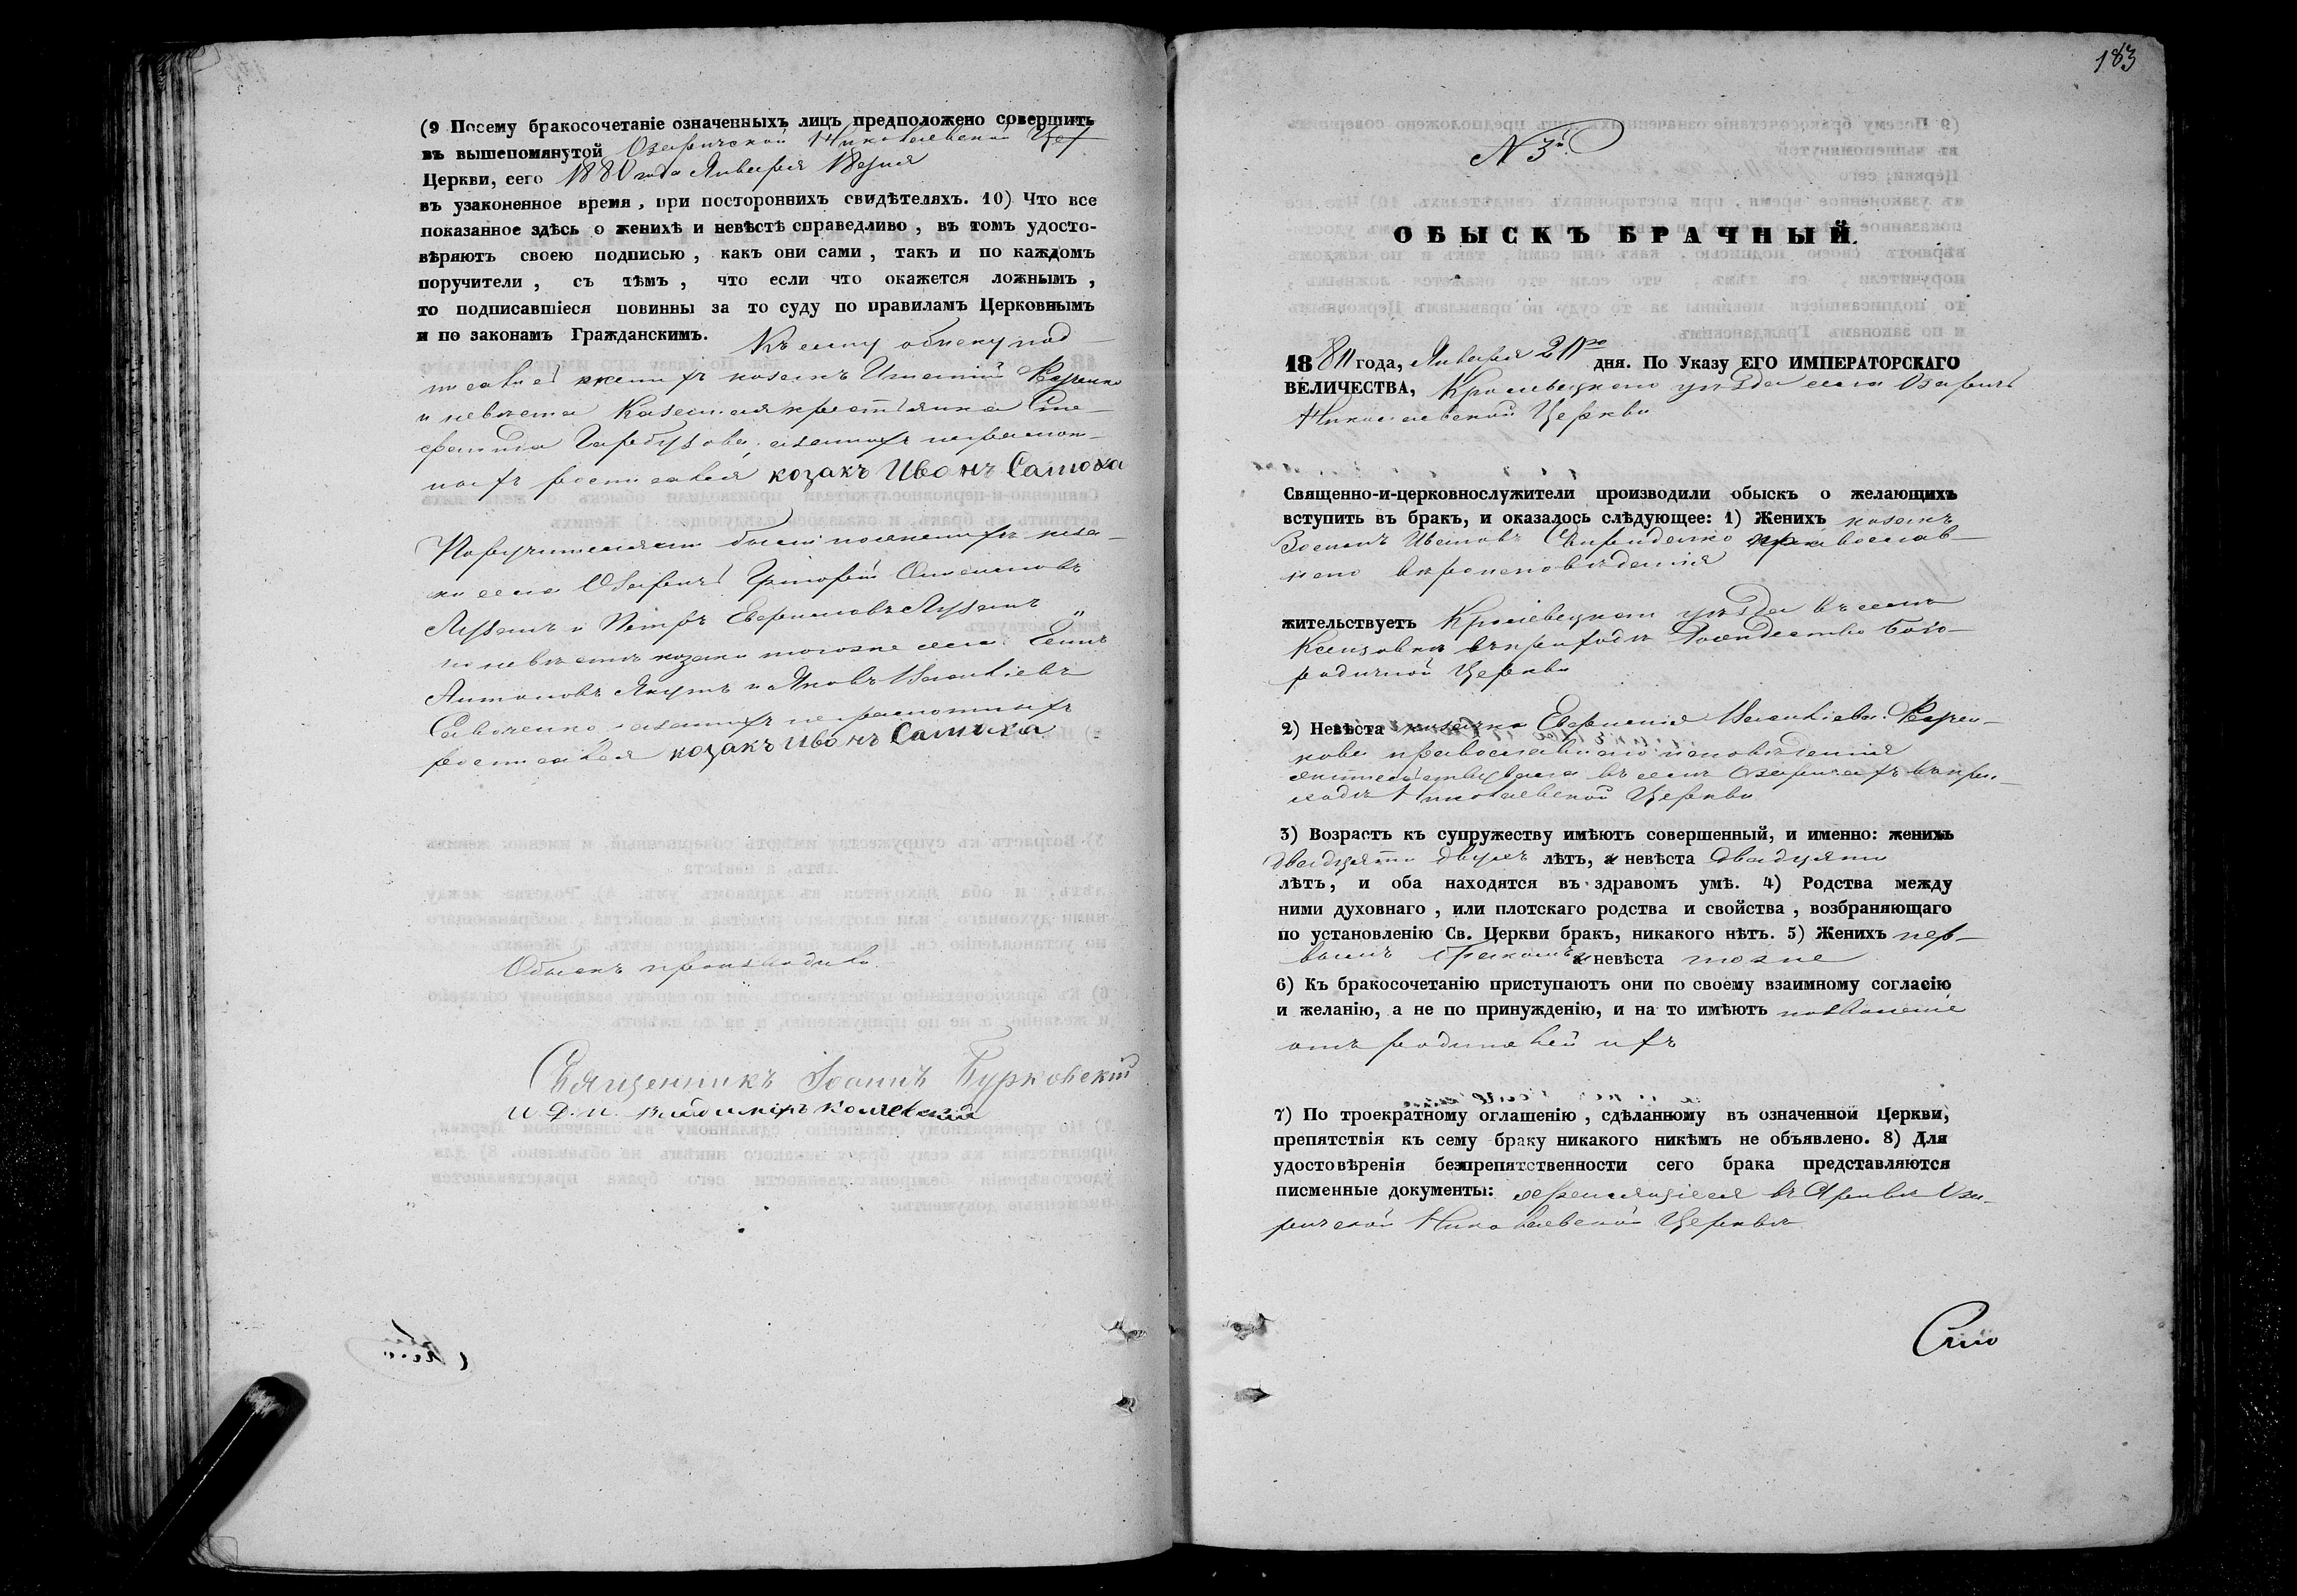 (9 Посему бракосочетаніе означенныхъ лицъ предположено совершить
въ вышепомянутой Озаричской Николаевской Цер
Церкви, сего 1880 года Января 18 дня
въ узаконенное время, при постороннихъ свидѣтеляхъ. 10) Что все
показанное здѣсь о женихѣ и невѣстѣ справедливо, въ томъ удосто-
вѣряютъ своею подписью, какъ они сами, такъ и по каждомъ
поручители, съ тѣмъ, что если что окажется ложнымъ,
то подписавшіеся повинны за то суду по правиламъ Церковнымъ
и по законамъ Гражданскимъ. Къ сему обыску под-
женихъ козакъ Игнатій
и невѣста крестьянка Сте-
неграмот-
ныхъ росписался козакъ Иванъ Самоха
Поручителями были по женихѣ коза-
ки села Озаричъ Григорій
и Петръ
по невѣстѣ козаки того же села
Антоновъ Якутъ и Яковъ Василіевъ
Савченко неграмотныхъ
росписался козакъ Иванъ Самоха
Обыскъ производили
Священникъ Іоаннъ Бурковскій
и. д. п. Владиміръ
183
N 3й
ОБЫСКЪ БРАЧНЫЙ.
1880 года, Января 20го дня. По Указу ЕГО ИМПЕРАТОРСКАГО
ВЕЛИЧЕСТВА, Кролевецкаго уѣзда села Озаричъ
Николаевской Церкви
Священно-и-церковнослужители производили обыскъ о желающихъ
вступить въ бракъ, и оказалось слѣдующее: 1) Женихъ козакъ
Ивановъ Спириденко православ-
наго вѣроисповѣданія
жительствуетъ Кролевецкаго уѣзда въ селѣ
въ приходѣ Рождество Бого-
родичной Церкви
2) Невѣста козачка Евфимія Василіева
кова православнаго исповѣданія
жительствовала въ селѣ Озаричахъ въ при-
ходѣ Николаевской Церкви
3) Возрастъ къ супружеству имѣютъ совершенный, и именно: женихъ
двадцяти двухъ лѣтъ, а невѣста двадцяти
лѣтъ, и оба находятся въ здравомъ умѣ. 4) Родства между
ними духовнаго, или плотскаго родства и свойства, возбраняющаго
по установленію Св. Церкви бракъ, никакого нѣтъ. 5) Женихъ пер-
вымъ бракомъ а невѣста тоже
6) Къ бракосочетанію приступаютъ они по своему взаимному согласію
и желанію, а не по принужденію, и на то имѣютъ позволеніе
отъ родителей ихъ
7) По троекратному оглашенію, сдѣланному въ означенной Церкви,
препятствія къ сему браку никакого никѣмъ не объявлено. 8) Для
удостовѣренія безпрепятственности сего брака представляются
писменные документы: хранящіеся въ Архивѣ Оза-
ричской Николаевской Церкви